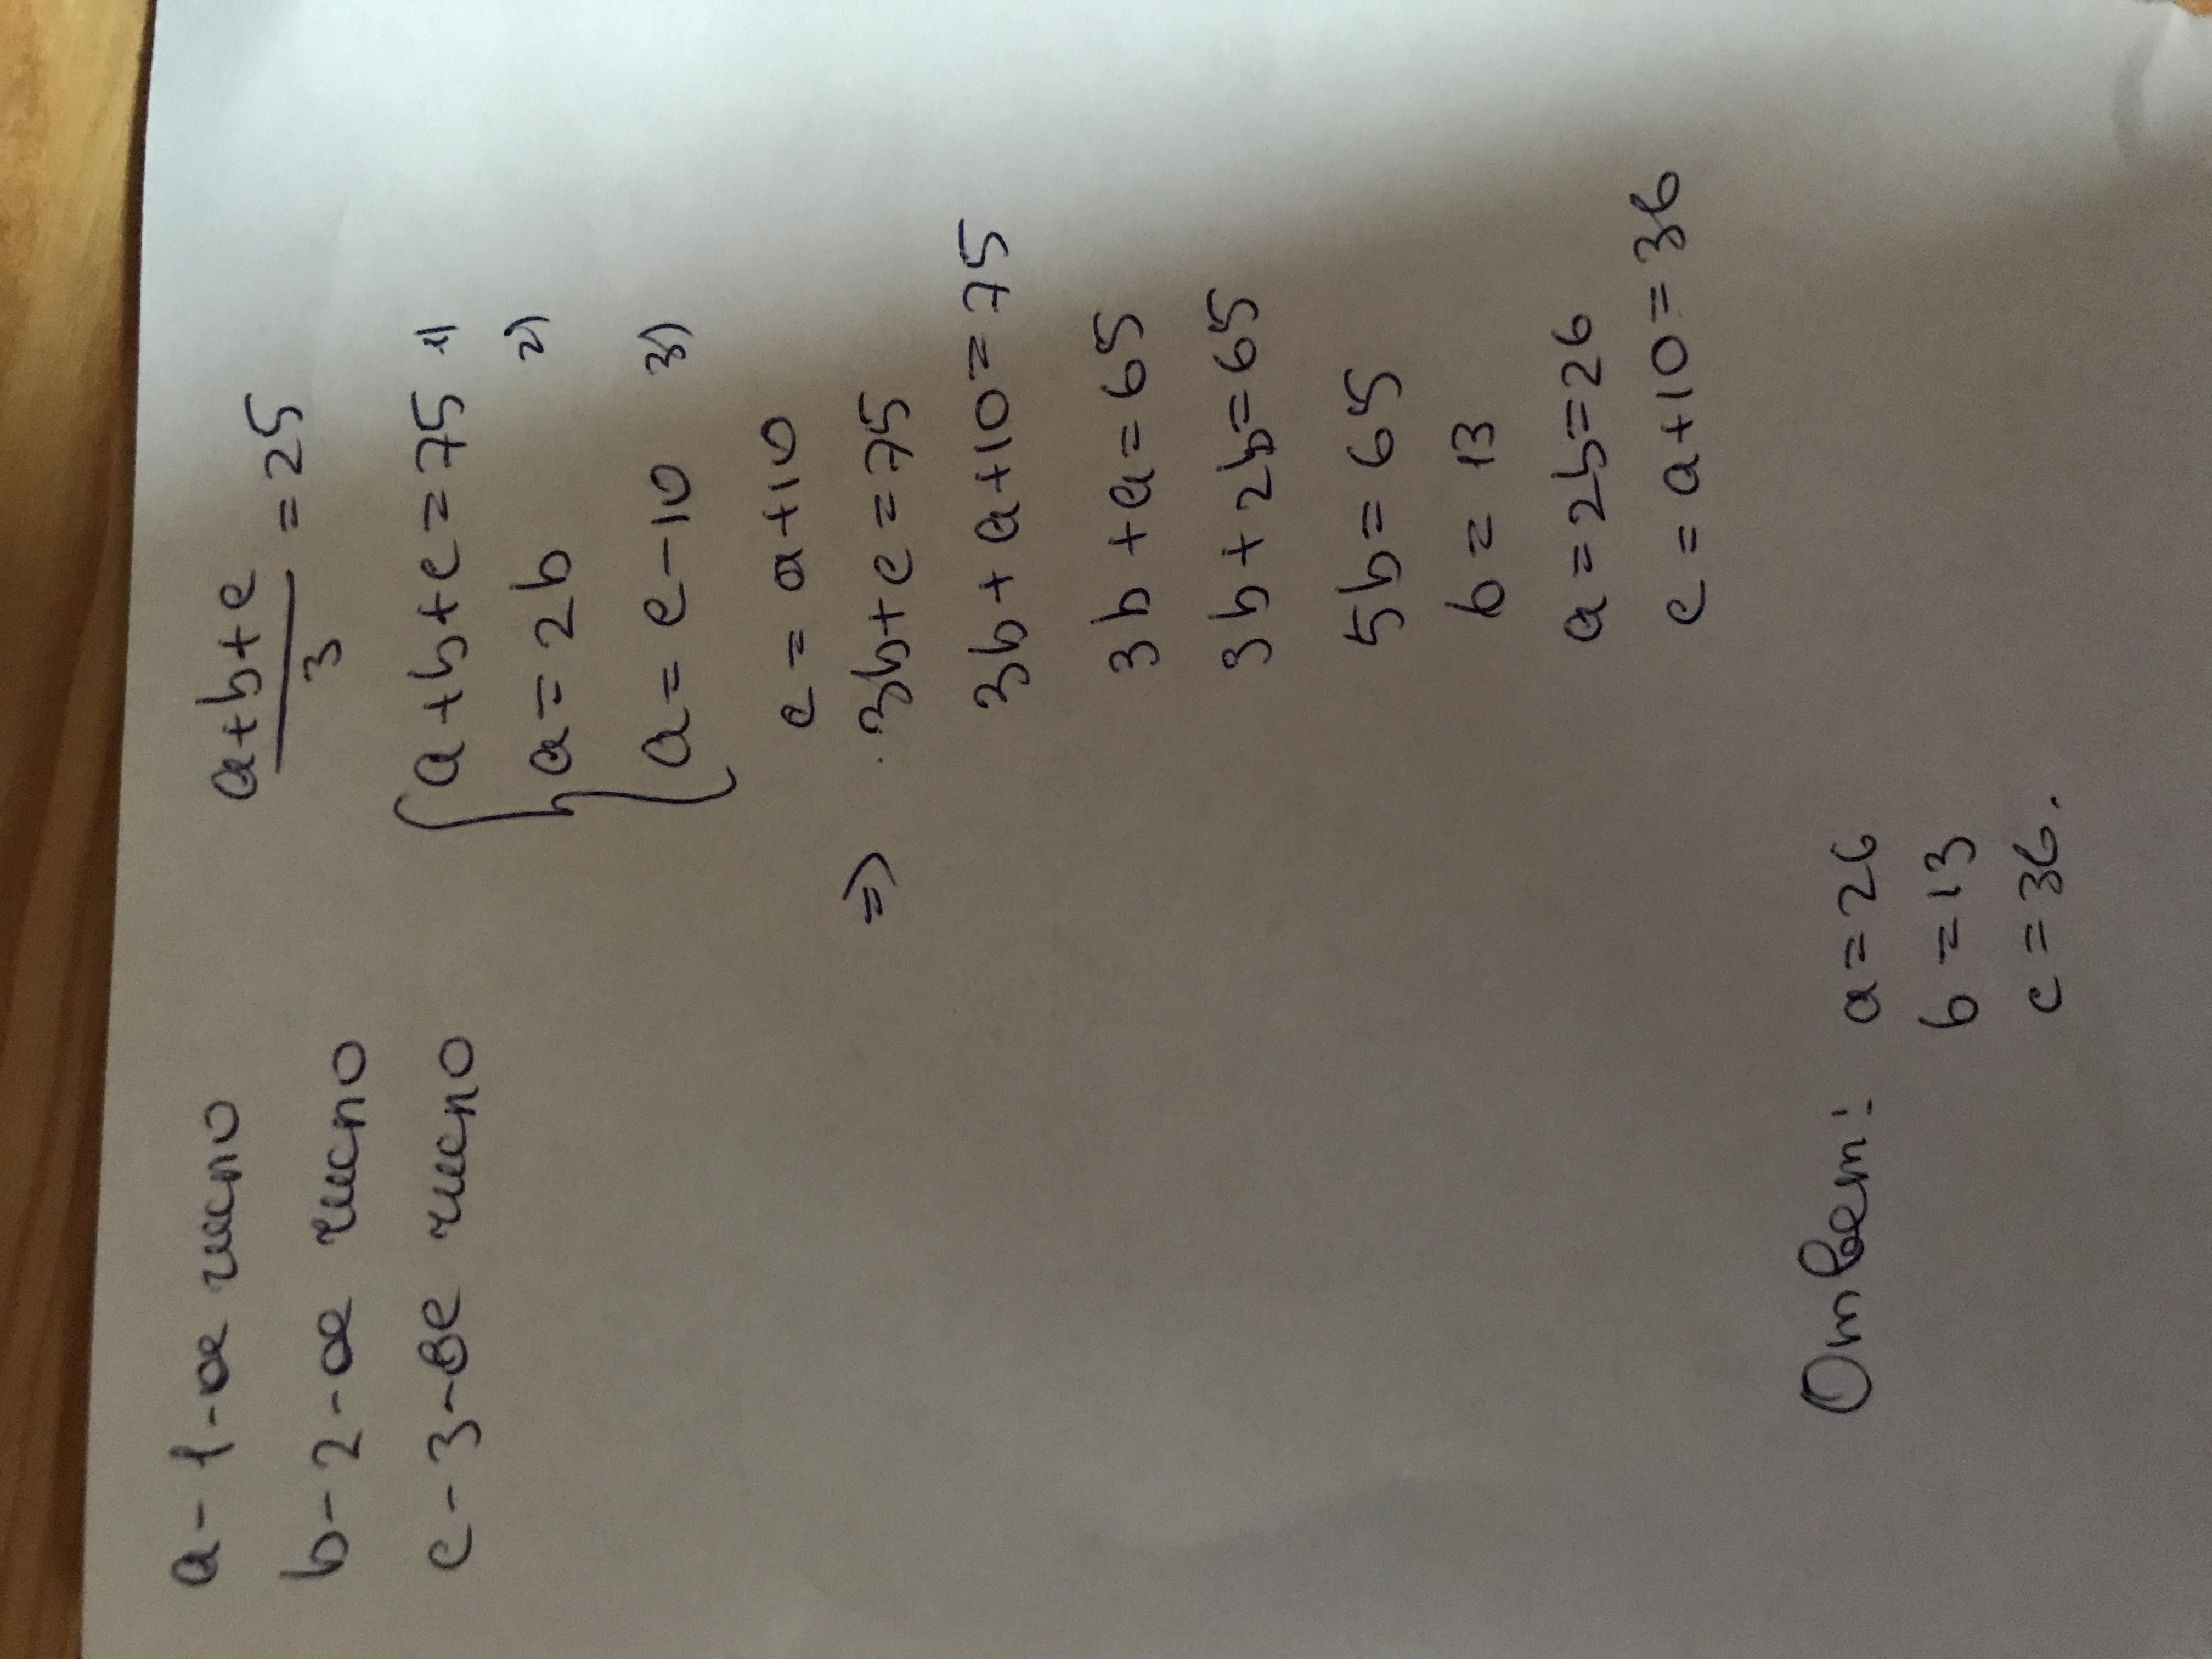 a - 1-ое число
b - 2-ое число
c - 3-ве число
a+b+c
3
= 25
a+b+c=75 1)
a=2b 2)
a=c-10 3)
c=a+10
=> 3b+c=75
3b+a+10=75
3b+a=65
3b+2b=65
5b=65
b=13
a=2b=26
c=a+10=36
Ответ: a=26
b=13
c=36.